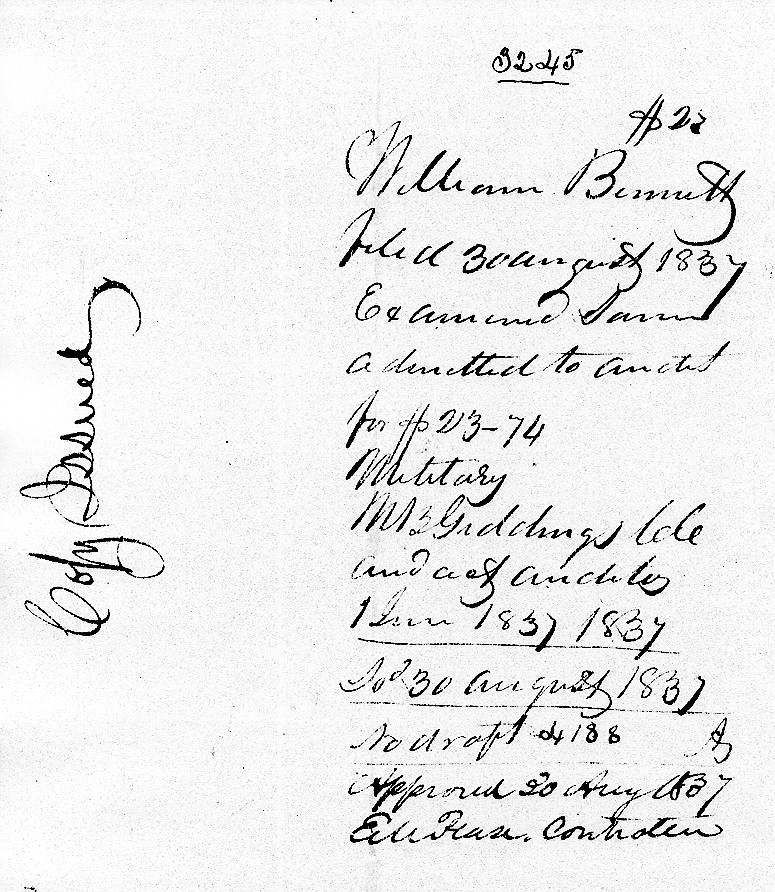 3245
$23
William Bennett
filed 30 august 1837
Examined Same
admitted to audit
for $23-74
Military
Giddings Cclk
and act auditor
1 June 1837 1837
Iod 30 august 1837
No draft 4188
Approved 30 Aug 1837
E M Pease. Controller
Copy Issued